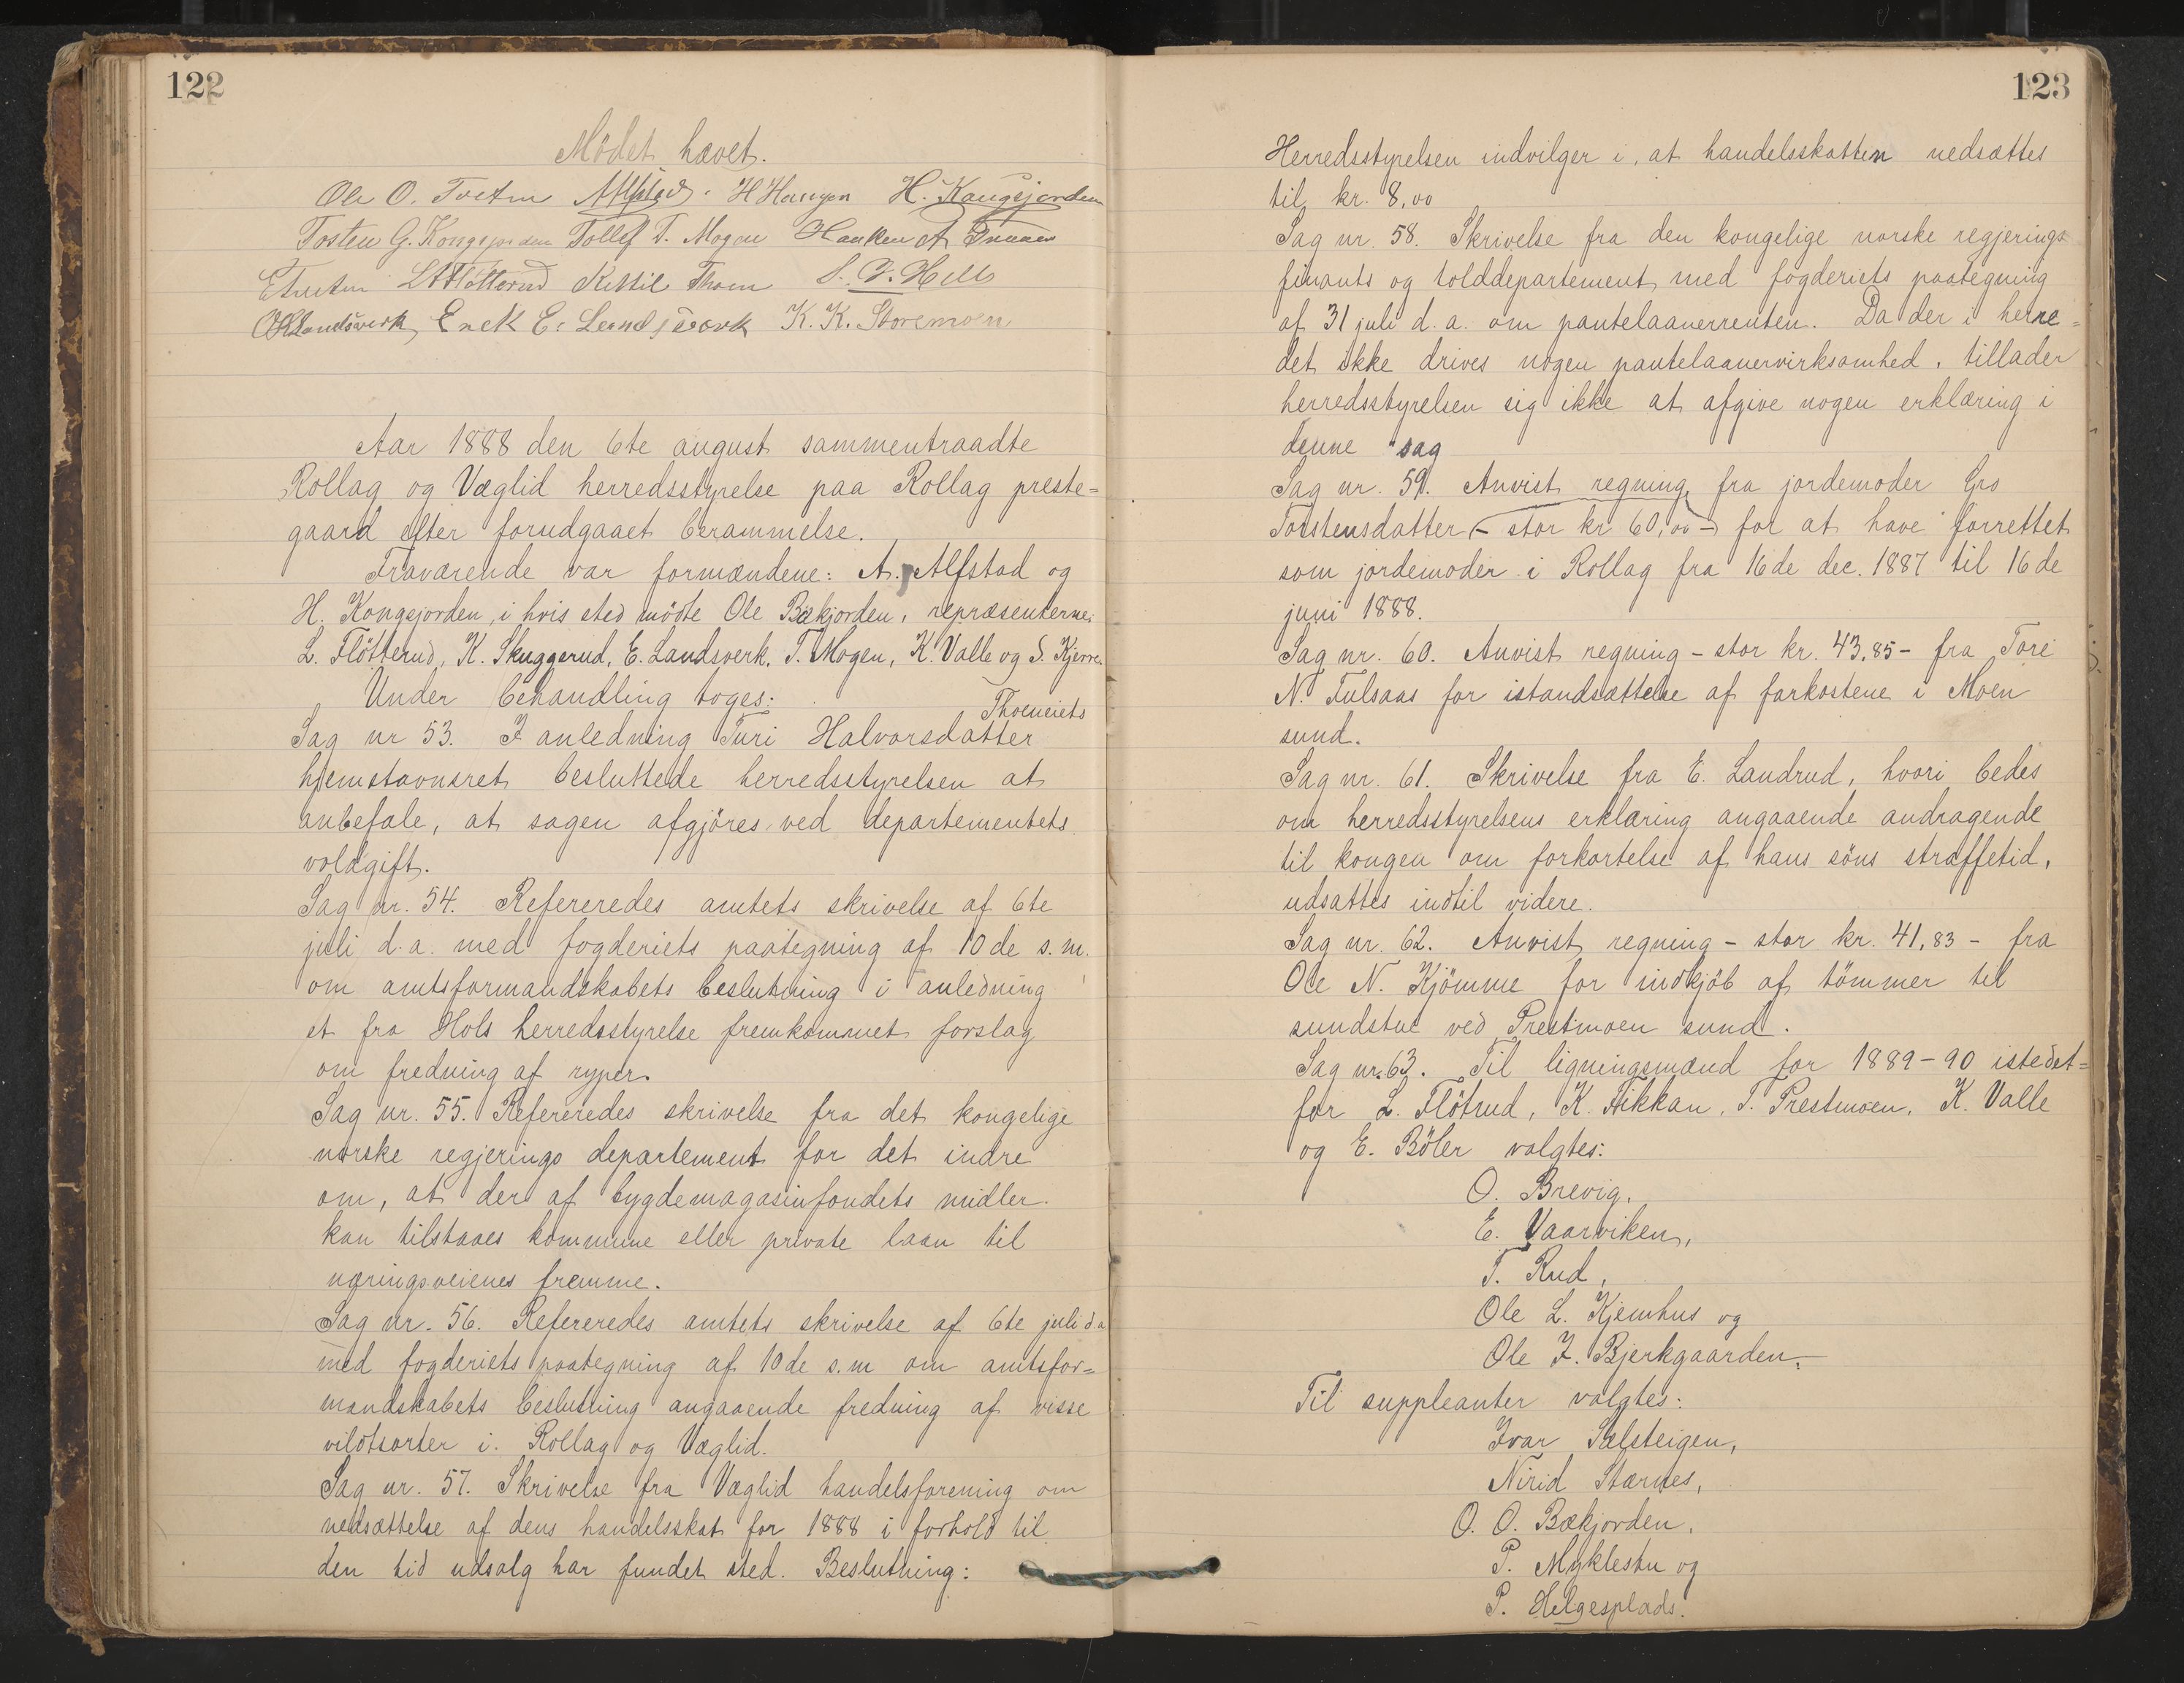 122
Mödet hævet.
Ole O. Tveten H Haugen H. Kongsjorden
Tosten G. Kongsjorden Tollef T. Mogen Haaken A
L Flötterud Kittil Thoen
OKLandsverk, Erek E. Landsverk K. K. Storemoen
Aar 1888 den 6te august sammentraadte
Rollag og Væglid herredsstyrelse paa Rollag preste=
gaard efter forudgaaet berammelse.
Fraværende var formændene: A. Alfstad og
H. Kongsjorden, i hvis sted mödte Ole Bækjorden, repræsenterne:
L. Flötterud, K. Skuggerud, E. Landsverk, T. Mogen, K. Valle og S. Kjerre.
Under behandling toges:
Thoeneiets
Sag nr 53. I anledning Turi Halvorsdatter
hjemstavnsret besluttede herredsstyrelsen at
anbefale, at sagen afgjöres ved departementets
voldgift.
Sag nr. 54. Refereredes amtets skrivelse af 6te
juli d.a. med fogderiets paategning af 10de s.m.
om amtsformandskabets beslutning i anledning
et fra Hols herredsstyrelse fremkommet forslag
om fredning af ryper.
Sag nr. 55. Refereredes skrivelse fra det kongelige
norske regjerings departement for det indre
om, at der af bygdemagasinfondets midler
kan tilstaaes kommune eller private laan til
næringsveienes fremme.
Sag nr. 56. Refereredes amtets skrivelse af 6te juli d a
med fogderiets paategning af 10de s.m om amtsfor=
mandskabets beslutning angaaende fredning af visse
vildtsorter i Rollag og Væglid.
Sag nr. 57. Skrivelse fra Væglid handelsforening om
nedsættelse af dens handelsskat for 1888 i forhold til
den tid udsalg har fundet sted. Beslutning:
123
Herredsstyrelsen indvilger i, at handelsskatten nedsættes
til kr. 8,00
Sag nr. 58. Skrivelse fra den kongelige norske regjerings
finants og tolddepartement med fogderiets paategning
af 31 juli d.a. om pantelaanerrenten. Da der i herre=
det ikke drives nogen pantelaanervirksomhed, tillader
herredsstyrelsen sig ikke at afgive nogen erklæring i
denne sag
Sag nr. 59. Anvist regning fra jordemoder Gro
Torstensdatter – stor kr 60,00 – for at have forrettet
som jordemoder i Rollag fra 16de dec. 1887 til 16de
juni 1888.
Sag nr. 60. Anvist regning – stor kr. 43,85 – fra Tore
N. Fulsaas for istandsættelse af farkostene i Moen
sund.
Sag nr. 61. Skrivelse fra E. Landrud, hvori bedes
om herredsstyrelsens erklæring angaaende andragende
til kongen om forkortelse af hans söns straffetid,
udsattes indtil videre.
Sag nr. 62. Anvist regning – stor kr. 41,83 – fra
Ole N. Kjömme for indkjöb af tömmer til
sundstue ved Prestmoen sund.
Sag nr. 63. Til ligningsmænd for 1889–90 istedet=
for L. Flötrud, K. Fikkan, T. Prestmoen, K. Valle
og E. Böler valgtes:
O. Brevig,
E. Vaarviken,
T. Rud,
Ole L. Kjemhus og
Ole J. Bjerkgaarden.
Til suppleanter valgtes:
Ivar Sælsteigen,
Nirid Stærnes,
O. O. Bækjorden,
P. Myklestu og
P. Helgesplads.